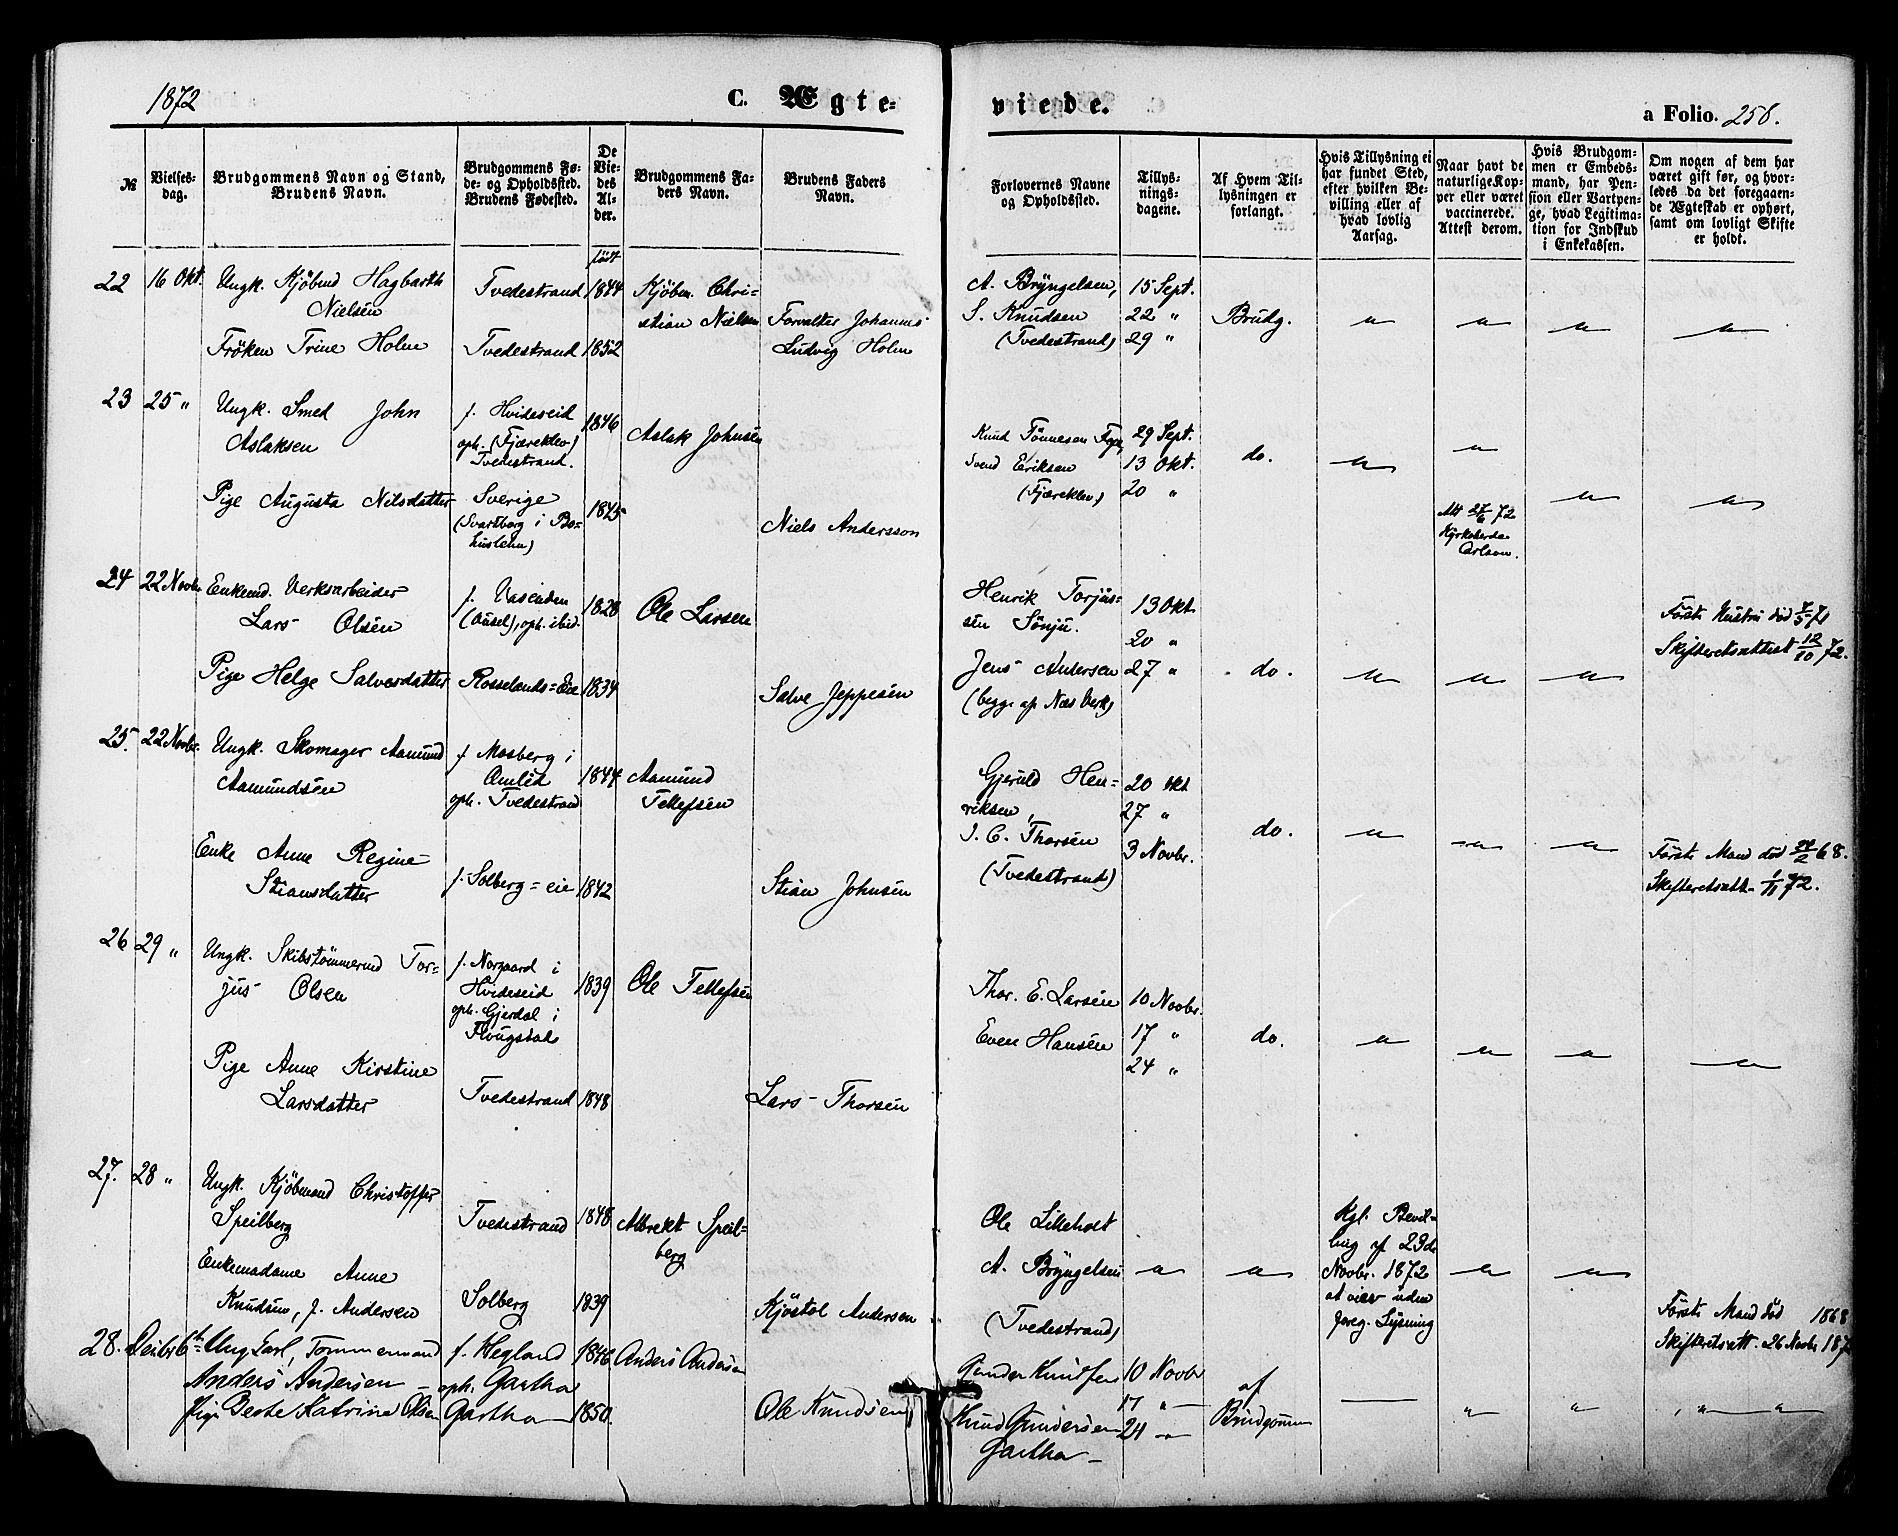 1872
C. Ægteviede.
a Folio. 256.
№
Vielsesdag.
Brudgommens Navn og Stand, Brudens Navn.
Brudgommens Føde- og Opholdssted. Brudens Fødested.
De Viedes Alder.
Brudgommens Faders Navn.
Brudens Faders Navn.
Forlovernes Navne og Opholdssted.
Tillysningsdagene.
Af Hvem Tillysningen er forlangt.
Hvis Tillysning ei har fundet Sted, efter hvilken Bevilling eller af hvad lovlig Aarsag.
Naar havt de naturlige Kopper eller været vaccinerede. Attest derom.
Hvis Brudgommen er Embedsmand, har Pension eller Vartpenge, hvad Legitimation for Indskud i Enkekassen.
Om nogen af dem har været gift før, og hvorledes da det foregaaende Ægteskab er ophørt, samt om lovligt Skifte er holdt.
født
22 16 Okt. Ungk. Kjöbmd Hagbarth Tvedestrand 1844 Kjöbm. Chri= A. Bryngelsen, 15 Sept.
Nielsen stian Nielsen Forvalter Johannes S. Knudsen 22 " Brudg. " " " "
Fröken Trine Holm Tvedestrand 1852 Ludvig Holm (Tvedestrand) 29 "
23 25 " Ungk. Smed John f. Hvideseid 1846
Aslaksen oph. (Fjæreklev) Aslak Johnsen Knud Tönnesen 29 Sept.
Tvedestrand. Svend Eriksen 13 Okt. do. " "
Pige Augusta Nilsdatter Sverige 1845 (Fjæreklev) 20 " " "
(Svartborg i Bo= Niels Andersson Att 72
huslehn) Kyrkoherde
Carlson.
24 22 Novbr. Enkemd. Verksarbeider f. Vaseiden 1828 Ole Larsen Henrik Torjus= 13 Okt. Förste Hustru död 7/5 71
Lars Olsen (Ousel), oph. ibid. sen Sönju. 20 " Skifteretsattest 12/10 72.
Pige Helge Salvesdatter Rosselands=Eie 1834 Salve Jeppesen Jens Andersen 27 " do. " " "
(begge af Næs Verk)
25. 22 Novbr. Ungk. Skomager Aamund f. Mosberg i
Aamundsen Omlid 1844 Aamund Gjeruld Hen= 20 Okt
oph. Tvedestrand Tellefsen riksen, 27 "
Enke Anne Regine I. C. Thorsen 3 Novbr. do. " " " Förste Mand död 24/2 68.
Stiansdatter f. Solberg=eie 1842 Stian Johnsen (Tvedestrand) Skifteretsatt. 1/11 72.
26 29 " Ungk. Skibstömmermd Tor= f. Norgaard i
jus Olsen Hvideseid 1839 Ole Tellefsen Thor. E. Larsen 10 Novbr.
oph. Gjerdal i
Flougstad Even Hansen 17 " do. " " " "
Pige Anne Kirstine 24 "
Larsdatter Tvedestrand 1848 Lars Thorsen
27. 28 " Ungk. Kjöbmand Christoffer
Speilberg Tvedestrand 1848 Albrekt Speil= Ole Lilleholt Kgl. Bevil=
berg ling af 23de
Enkemadame Anne A. Bryngelsen " " Novbr. 1872 " "
Knudsen, f. Andersen Solberg 1839 Kjöstol Andersen at vies uden Förste Mand död 1868
(Tvedestrand) foreg. Lysning Skifteretsatt. 26 Novbr 187
28. Decbr 6te Ung Karl, Tömmermand f. Hegland 1846 Anders Andersen
Anders Andersen oph. Gartha Gunder Knudsen 10 Novbr af
Pige Berte Katrine Olsen Gartha 1850. Ole Knudsen 17 " Brudgommen — " " " "
Knud Gundersen 24 "
Gartha